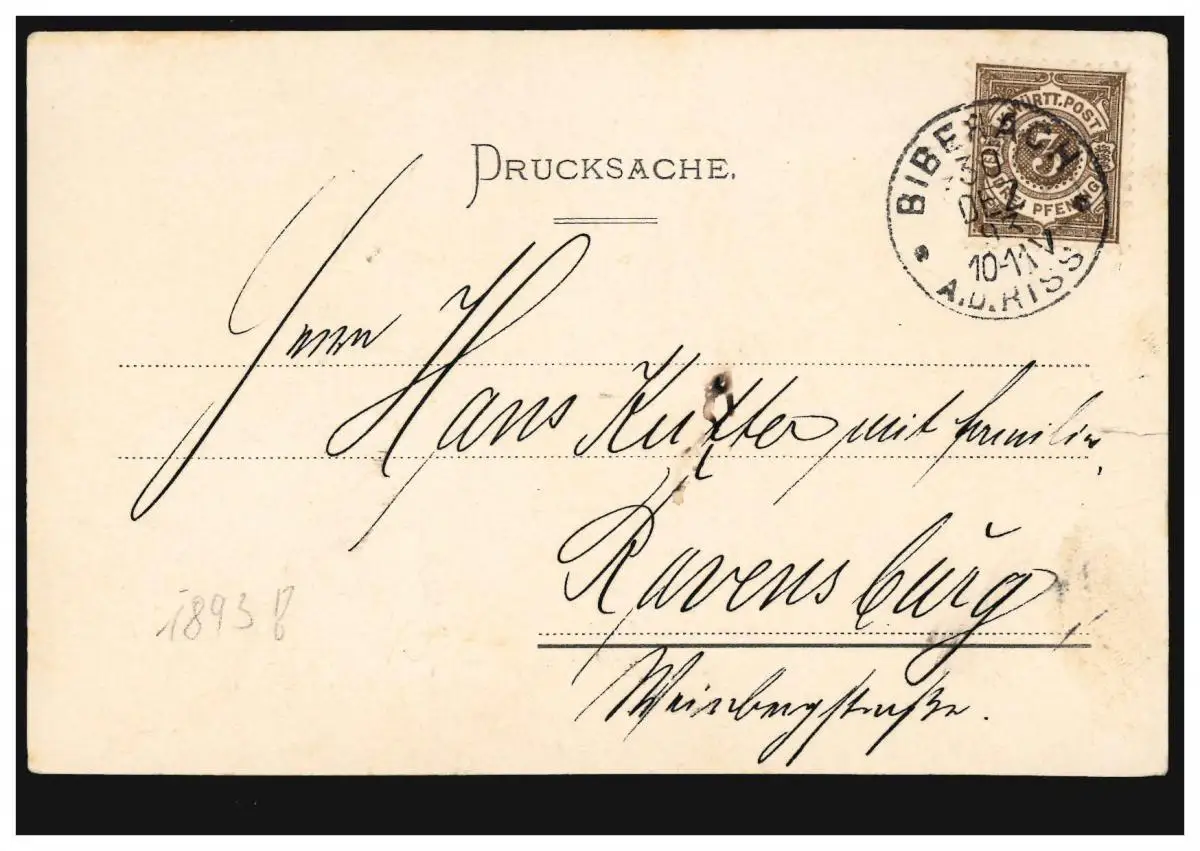 DRUCKSACHE.
K. WÜRTT. POST
3
DREI PFENNIG
BIBERACH
30
DEZ
10-11 V
A.D. RISS
Herrn
Hans Kutter mit Familie,
Ravensburg
Weinbergstraße.
1893